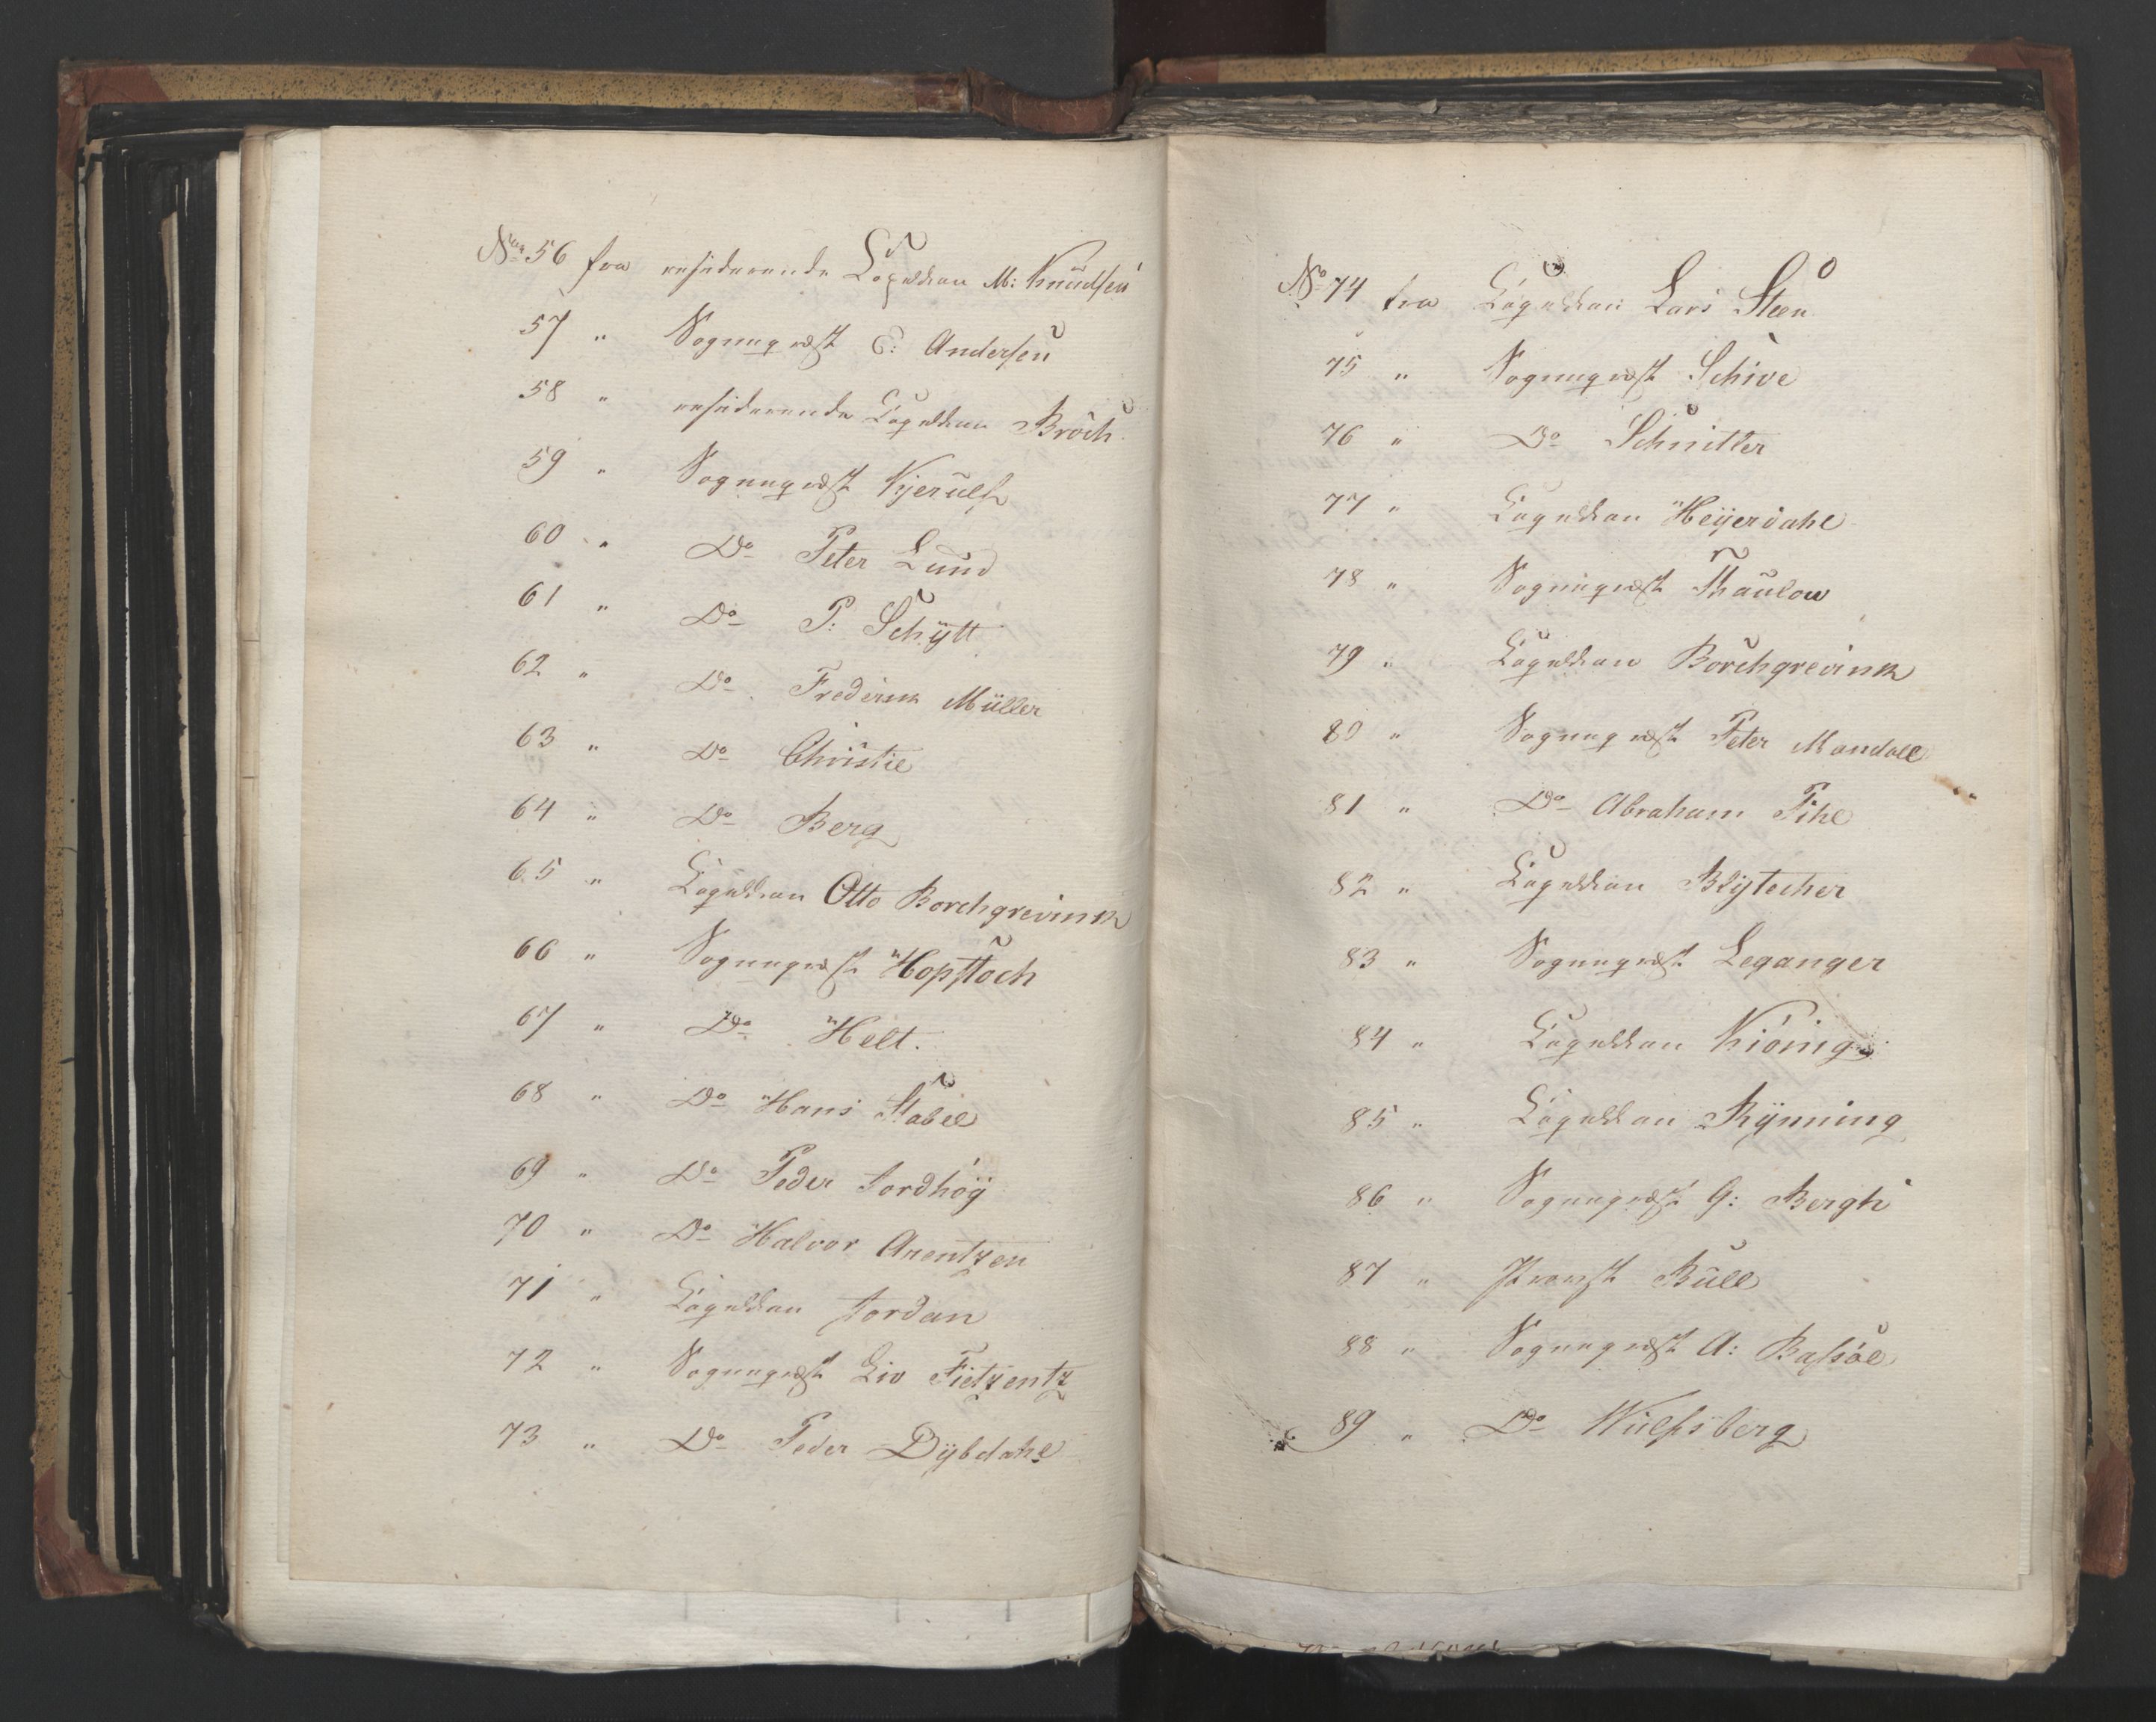 No 56 fra residerende Capellan M: Knudsen
57 " Sognepræst E: Andersen
58 " residerende Capellan Broch
59 " Sognepræst Kjerulf
60 " Do Peter Lund
61 " Do P: Schÿtt
62 " Do Frederik Müller
63 " Do Christie
64 " Do Berg
65 " Capellan Otto Borchgrevink
66 " Sognepræst Hopstock
67 " Do Helt.
68 " Do Hans Stabel
69 " Do Peder Jordhøÿ
70 " Do Halvor Arentzen
71 " Capellan Jordan
72 " Sognepræst Fietzentz
73 " Do Peder Dÿbdahl
No 74 fra Capellan Lars Steen
75 " Sognepræst Schive
76 " Do Schnitler
77 " Capellan Heÿerdahl
78 " Sognepræst Thaulow
79 " Capellan Borchgrevink
80 " Sognepræst Peter Mandall
81 " Do Abraham Pihl
82 " Capellan Blÿtecher
83 " Sognepræst Leganger
84 " Capellan Kiönig
85 " Capellan Rÿnning
86 " Sognepræst G: Bergh
87 " Provst Bull
88 " Sognepræst A: Bassöe
89 " Do Wulfsberg